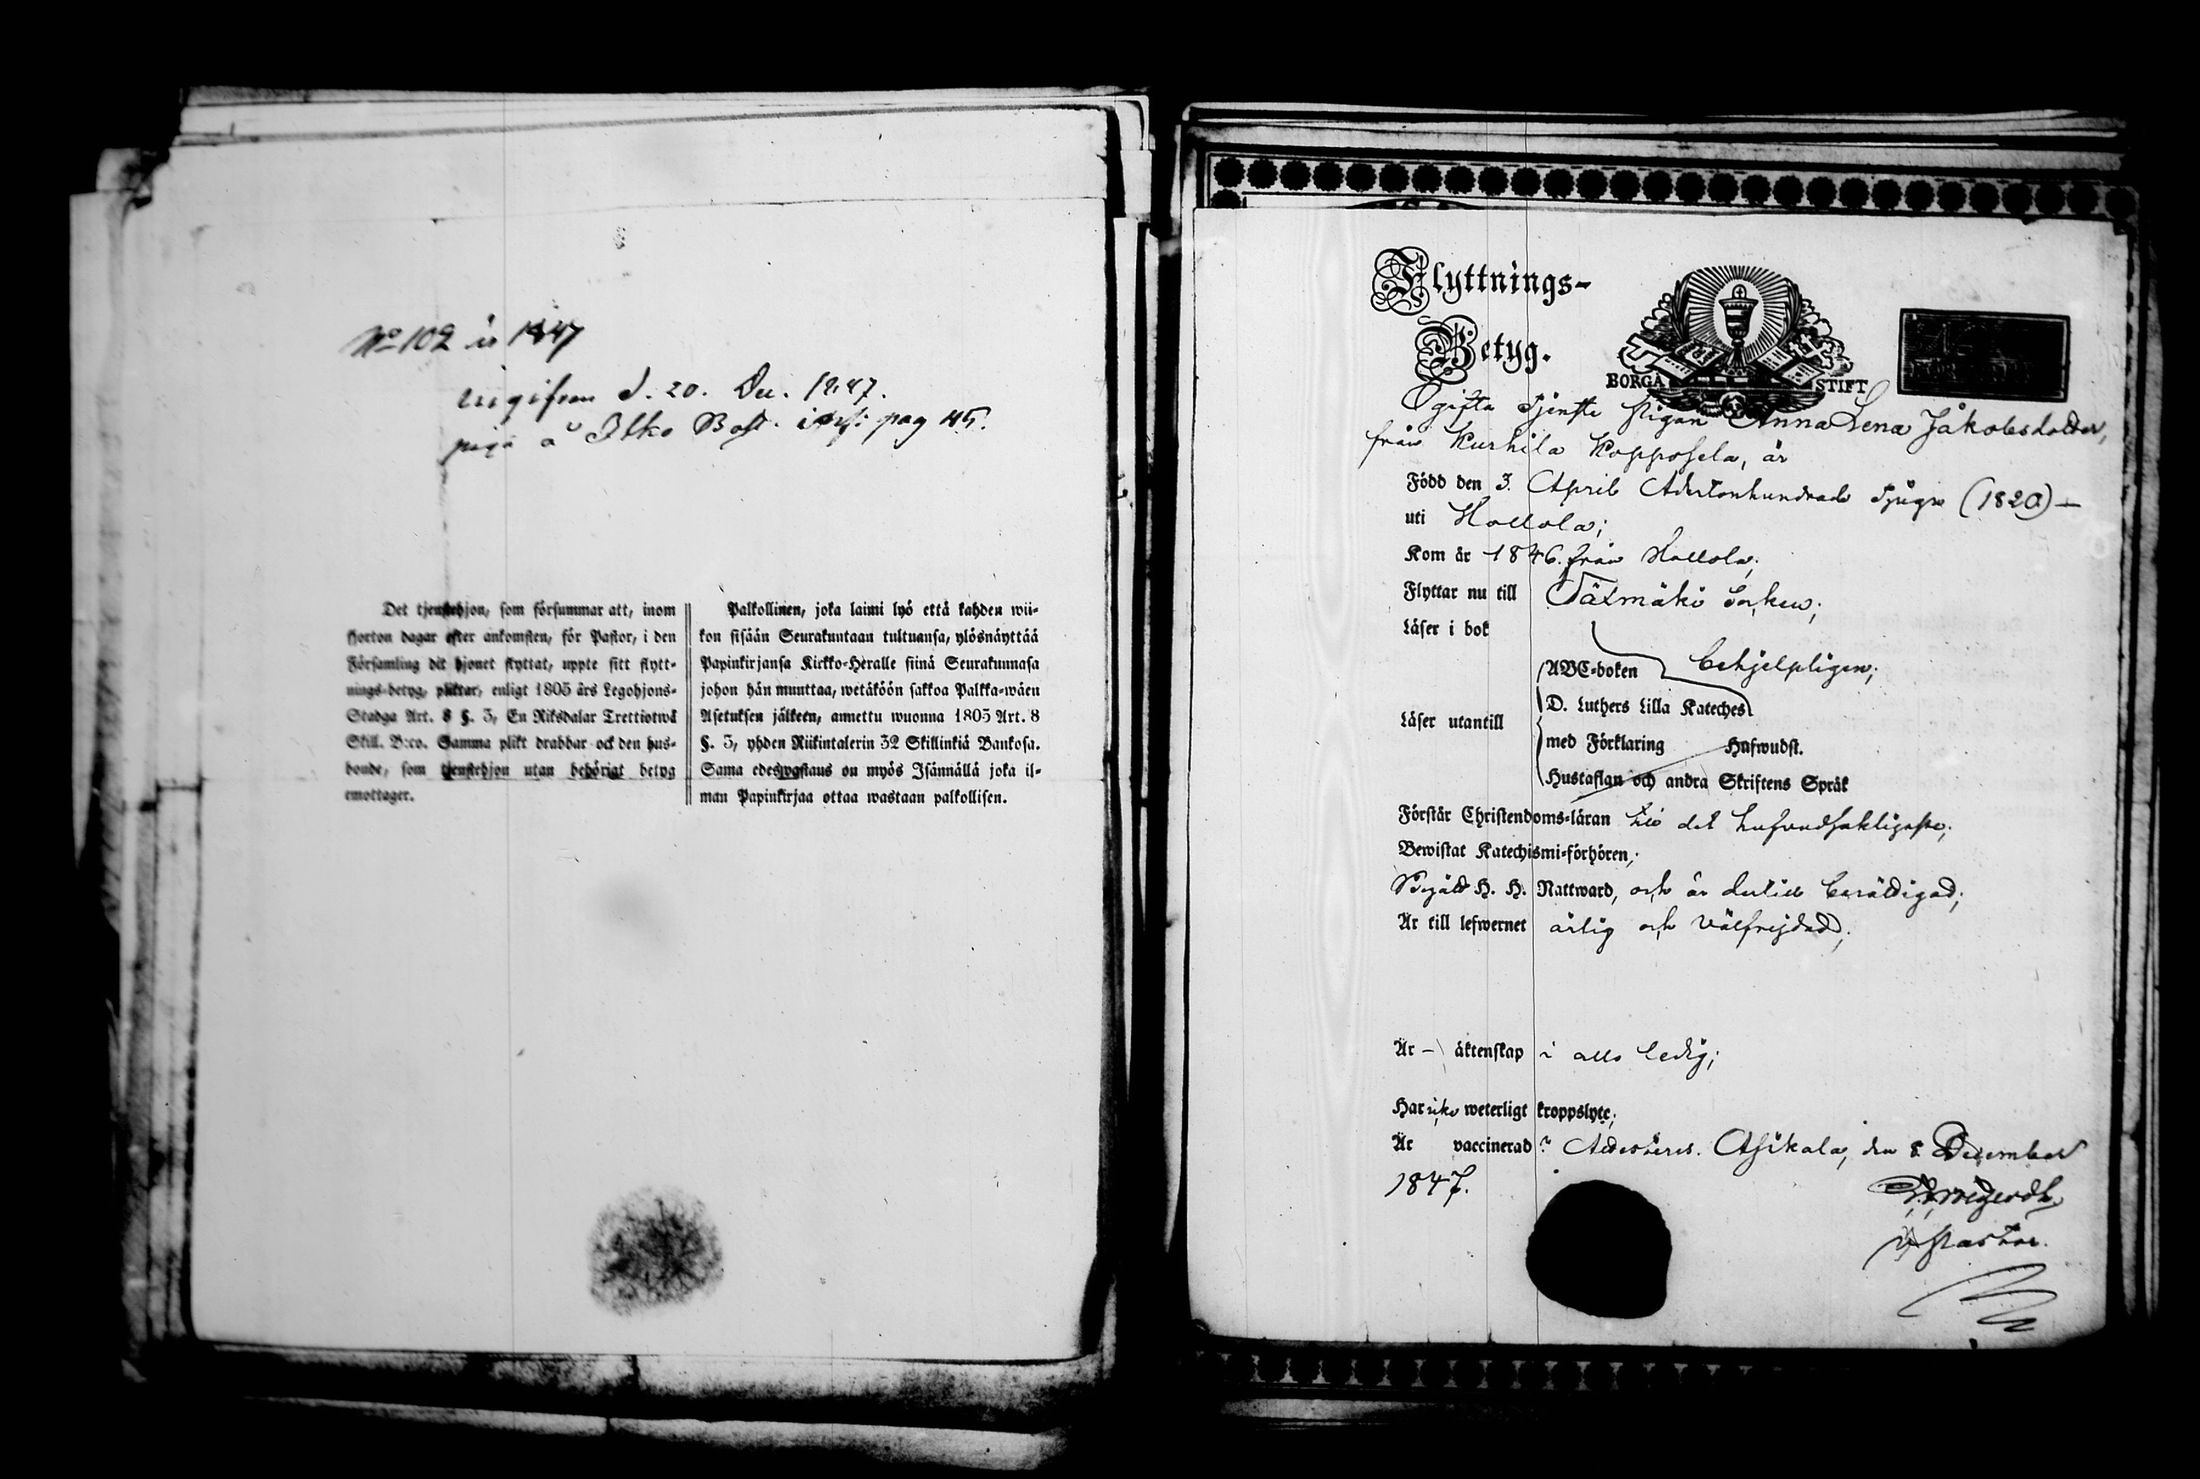 No 102 år 1847
ingifven d. 20. Dec. 1847.
piga å Ilko Bost. pag 45.
Det tjenstehjon, som försummar att, inom
fjorton dagar efter ankomsten, för Pastor, i den
Församling dit hjonet flyttat, uppte sitt flytt-
nings-betyg, pliktar, enligt 1805 års Legohjons-
Stadga Art. 8 §. 3, En Riksdalar Trettiotwå
Skill. B:co. Samma plikt drabbar ock den hus-
bonde, som tjenstehjon utan behörigt betyg
emottager.
Palkollinen, joka laimi lyö että kahden wii-
kon sisään Seurakuntaan tultuansa, ylösnäyttää
Papinkirjansa Kirkko-Herralle siinä Seurakunnasa
johon hän munttaa, wetäköön sakkoa Palkka-wäen
Asetuksen jälkeen, annettu wuonna 1805 Art. 8
§. 3, yhden Riikintalerin 32 Skillinkiä Bankosa.
Sama edeswastaus on myös Isännällä joka il-
man Papinkirjaa ottaa wastaan palkollisen.
Flyttnings-
Betyg.
BORGÅ STIFT
Ogifta Tjenste Pigan Anna Lena Jakobsdotter,
från Kurhila Kopposela, är
Född den 3. April Adertonhundrade Tjugu (1820) —
uti Hollola;
Kom år 1846. från Hollola;
Flyttar nu till Sääxmäki Socken;
Läser i bok
behjelpligen;
Läser utantill
ABC-boken
D. Luthers Lilla Kateches
med Förklaring Hufwudst.
Hustaflan och andra Skriftens Språk
Förstår Christendoms-läran till det hufvudsakligaste;
Bewistat Katechismi-förhören;
Begått H. H. Nattward, och är dertill berättigad;
Är till lefwernet ärlig och välfrejdad;
Är – äktenskap i allo ledig;
Har icke weterligt kroppslyte;
Är vaccinerad? Attesteras. Asikkala, den 8 December
1847.
v. Pastor.